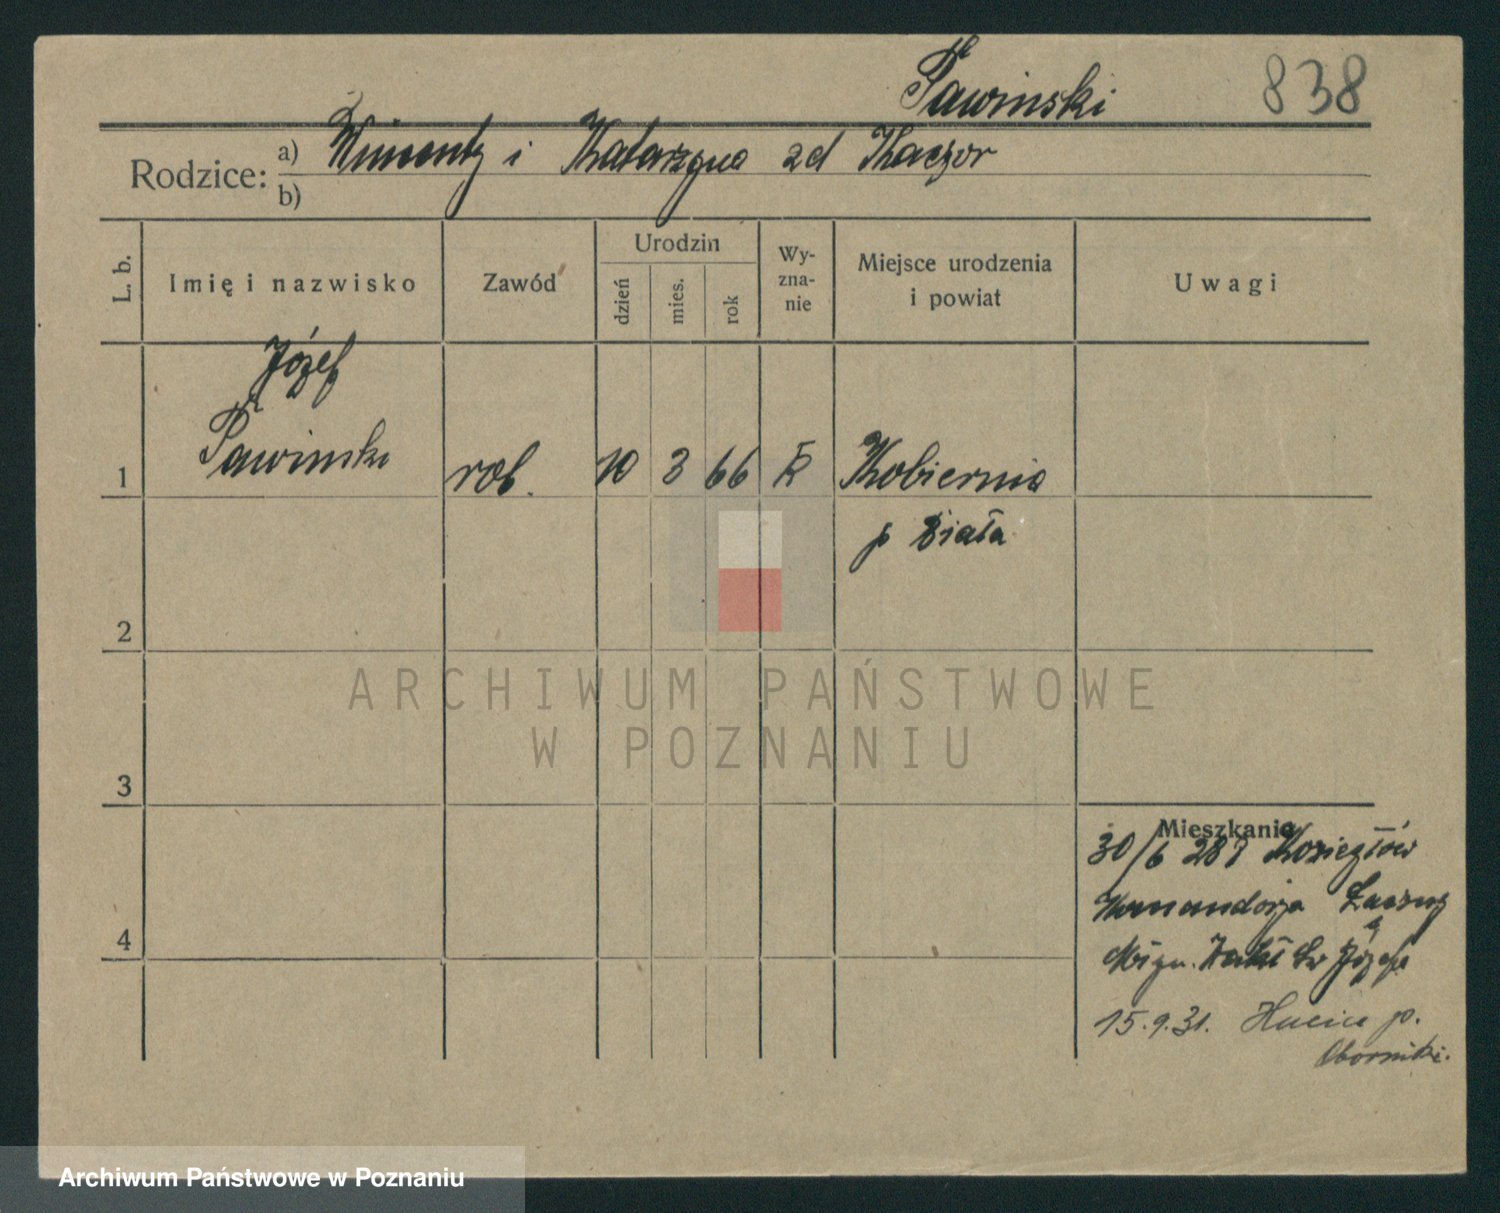 Pawinski 838
Rodzice: a) Wincenty i Katarzyna zd Kaczor
b)
L. b. Imię i nazwisko Zawód Urodzin dzień mies. rok Wy-zna-nie Miejsce urodzenia i powiat Uwagi
Józef
1 Pawinski rob. 10 3 66 K Kobiernia
p Biała
2
ARCHIWUM PAŃSTWOWE
W POZNANIU
3
Mieszkanie
30/6 28 Koziegłów
Komandorja
4
św Józefa
15.9.31. p.
Oborniki.
Archiwum Państwowe w Poznaniu